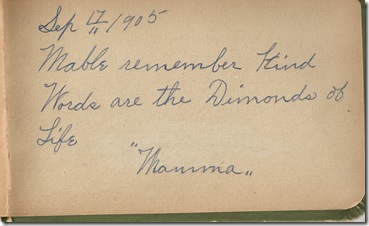 Sep 17/11/1905
Mable remember Kind
Words are the Dimonds of
Life
"Mamma„